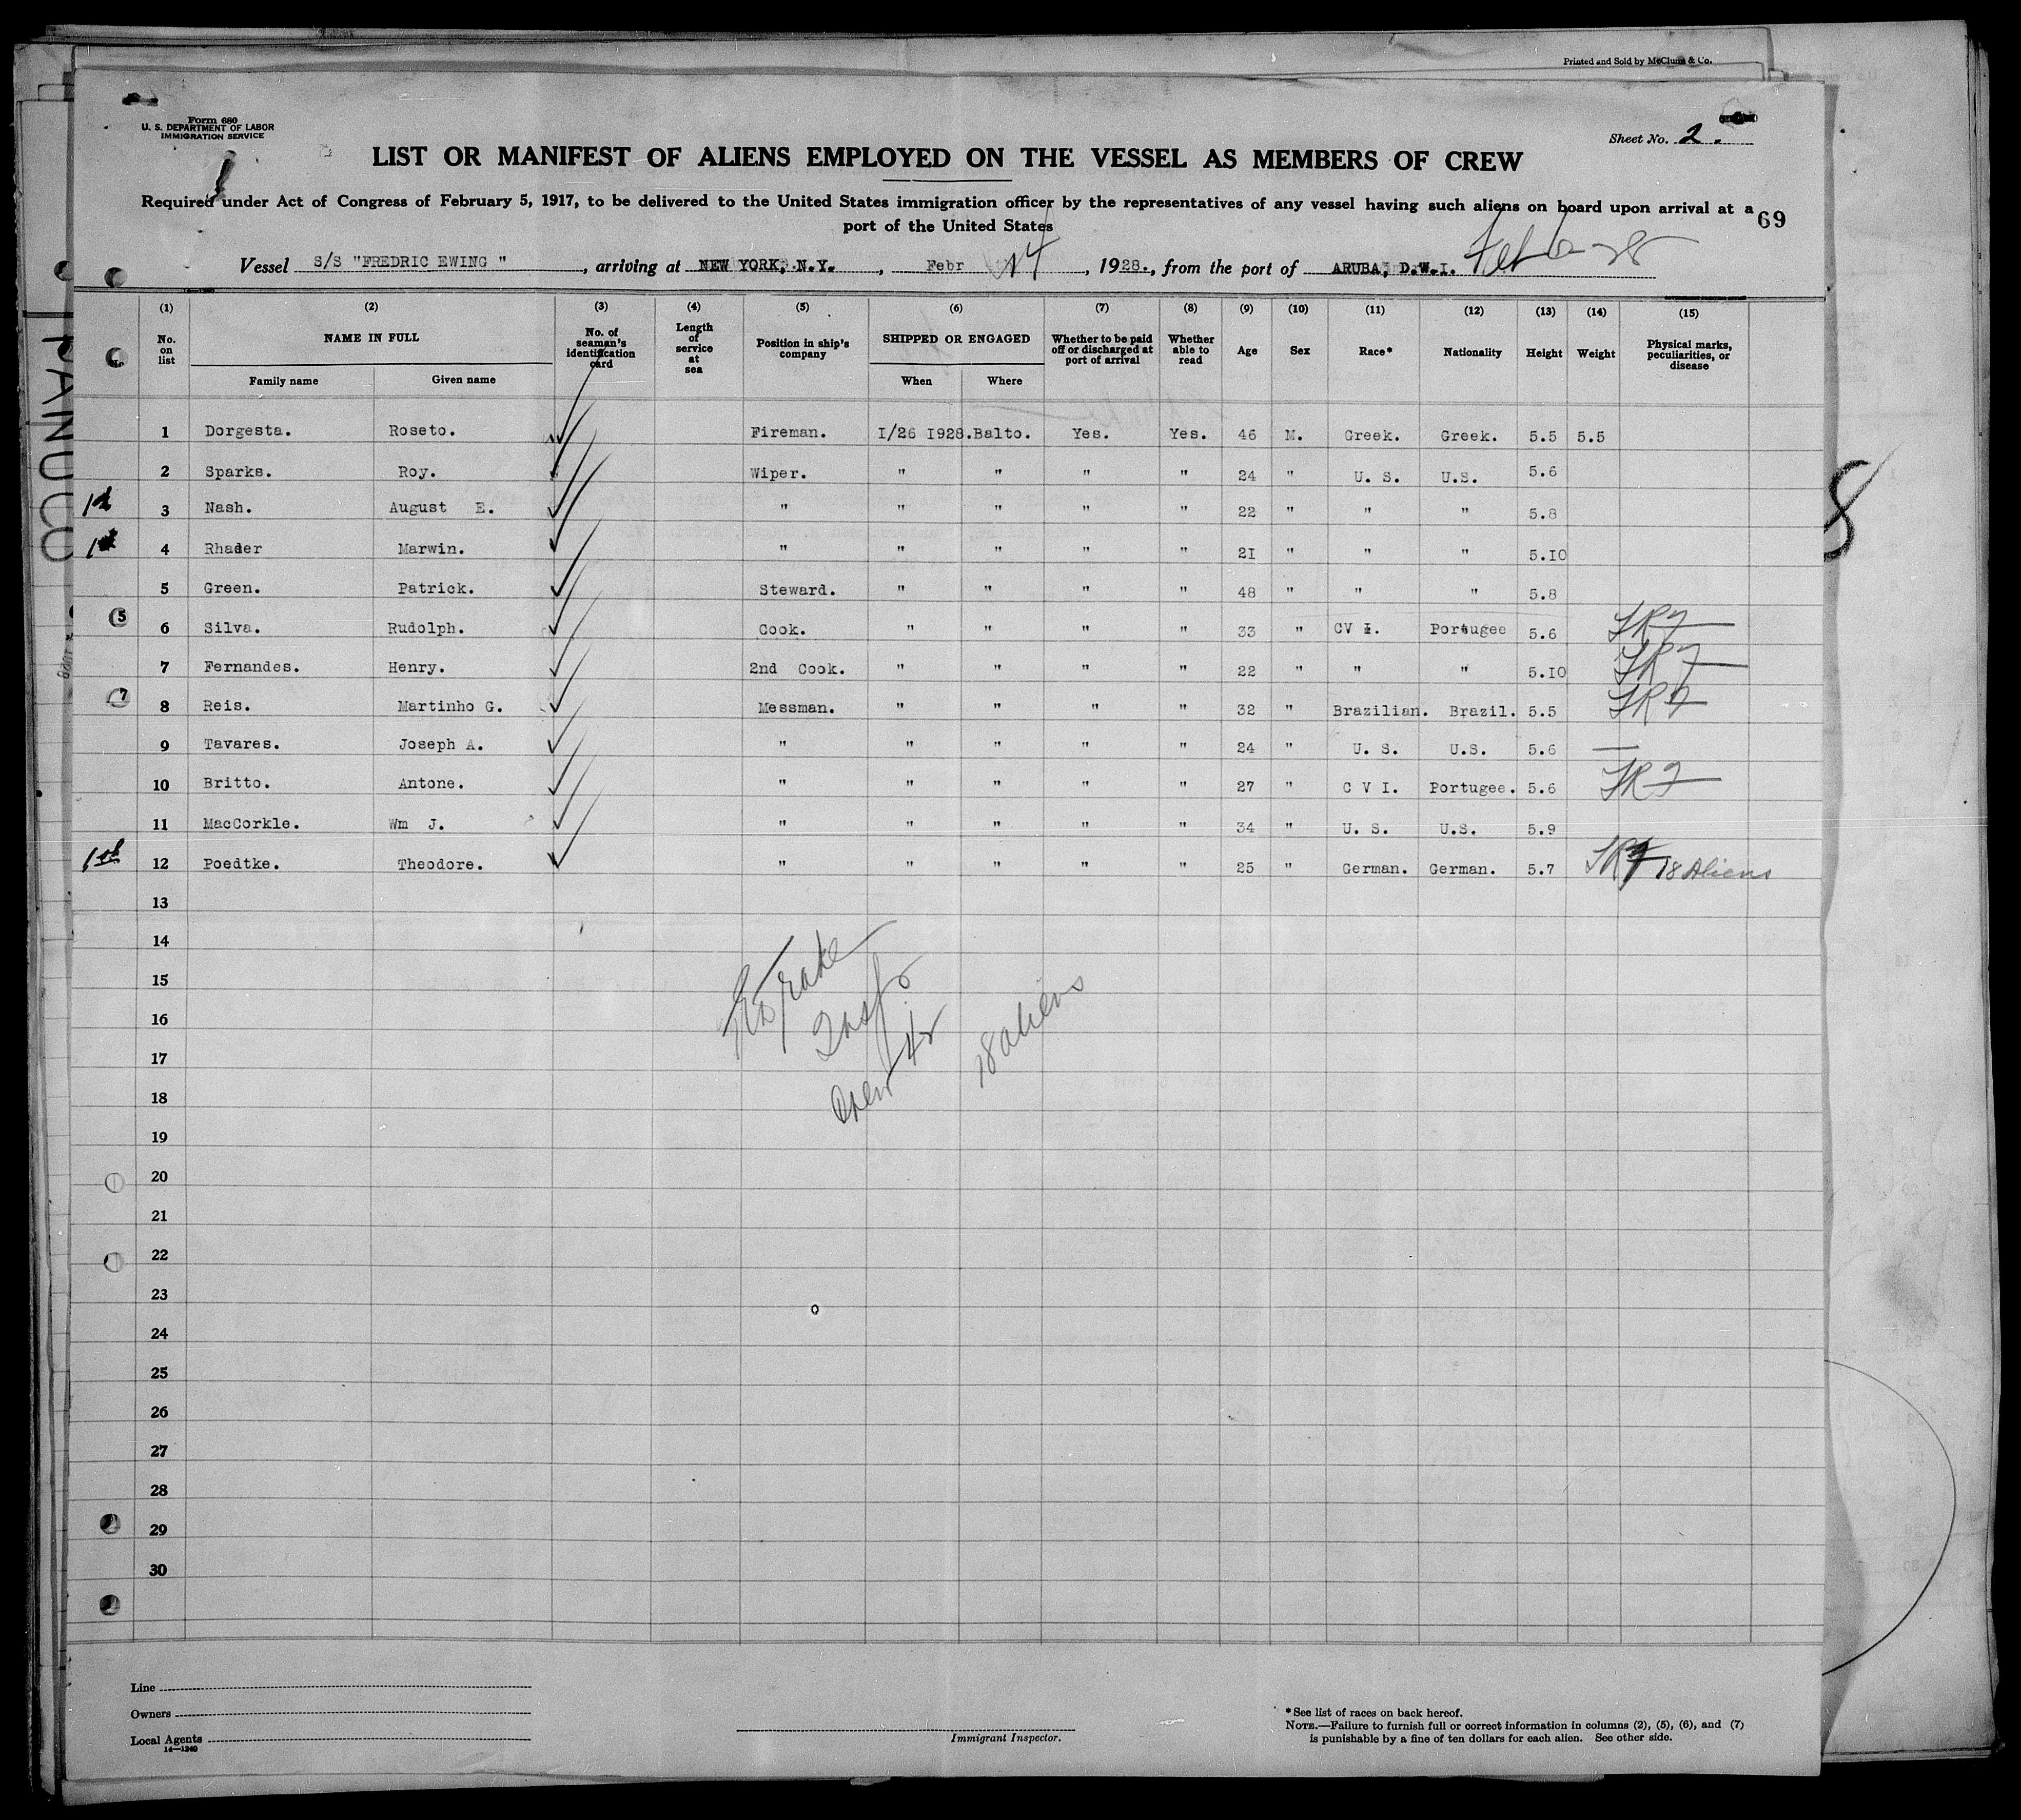 Printed and Sold by McClung & Co.
Form 680
U. S. DEPARTMENT OF LABOR
IMMIGRATION SERVICE
Sheet No. 2.
LIST OR MANIFEST OF ALIENS EMPLOYED ON THE VESSEL AS MEMBERS OF CREW
Required under Act of Congress of February 5, 1917, to be delivered to the United States immigration officer by the representatives of any vessel having such aliens on board upon arrival at a
port of the United States
69
Vessel S/S "FREDRIC EWING ", arriving at NEW YORK, N.Y., Febr 14, 1928., from the port of ARUBA, D.W.I.
(1) (2) (3) (4) (5) (6) (7) (8) (9) (10) (11) (12) (13) (14) (15)
No. on list NAME IN FULL No. of seaman's identification card Length of service at sea Position in ship's company SHIPPED OR ENGAGED Whether to be paid off or discharged at port of arrival Whether able to read Age Sex Race* Nationality Height Weight Physical marks, peculiarities, or disease
Family name Given name When Where
1 Dorgesta. Roseto. Fireman. 1/26 1928. Balto. Yes. Yes. 46 M. Greek. Greek. 5.5 5.5
2 Sparks. Roy. Wiper. " " " " 24 " U. S. U.S. 5.6
3 Nash. August E. " " " " " 22 " " " 5.8
4 Rhader Marwin. " " " " " 21 " " " 5.10
5 Green. Patrick. Steward. " " " " 48 " " " 5.8
5
6 Silva. Rudolph. Cook. " " " " 33 " CV I. Portugee 5.6
7 Fernandes. Henry. 2nd Cook. " " " " 22 " " " 5.10
7
8 Reis. Martinho G. Messman. " " " " 32 " Brazilian. Brazil. 5.5
9 Tavares. Joseph A. " " " " " 24 " U. S. U.S. 5.6
10 Britto. Antone. " " " " " 27 " C V I. Portugee. 5.6
11 MacCorkle. Wm J. " " " " " 34 " U. S. U.S. 5.9
12 Poedtke. Theodore. " " " " " 25 " German. German. 5.7 18 Aliens
13
14
15
16
17
18
19
20
21
22
23
24
25
26
27
28
29
30
Crew 42
18 aliens
PANUCO
8
Line
Owners
Local Agents
14—1240
Immigrant Inspector.
* See list of races on back hereof.
NOTE.—Failure to furnish full or correct information in columns (2), (5), (6), and (7)
is punishable by a fine of ten dollars for each alien. See other side.